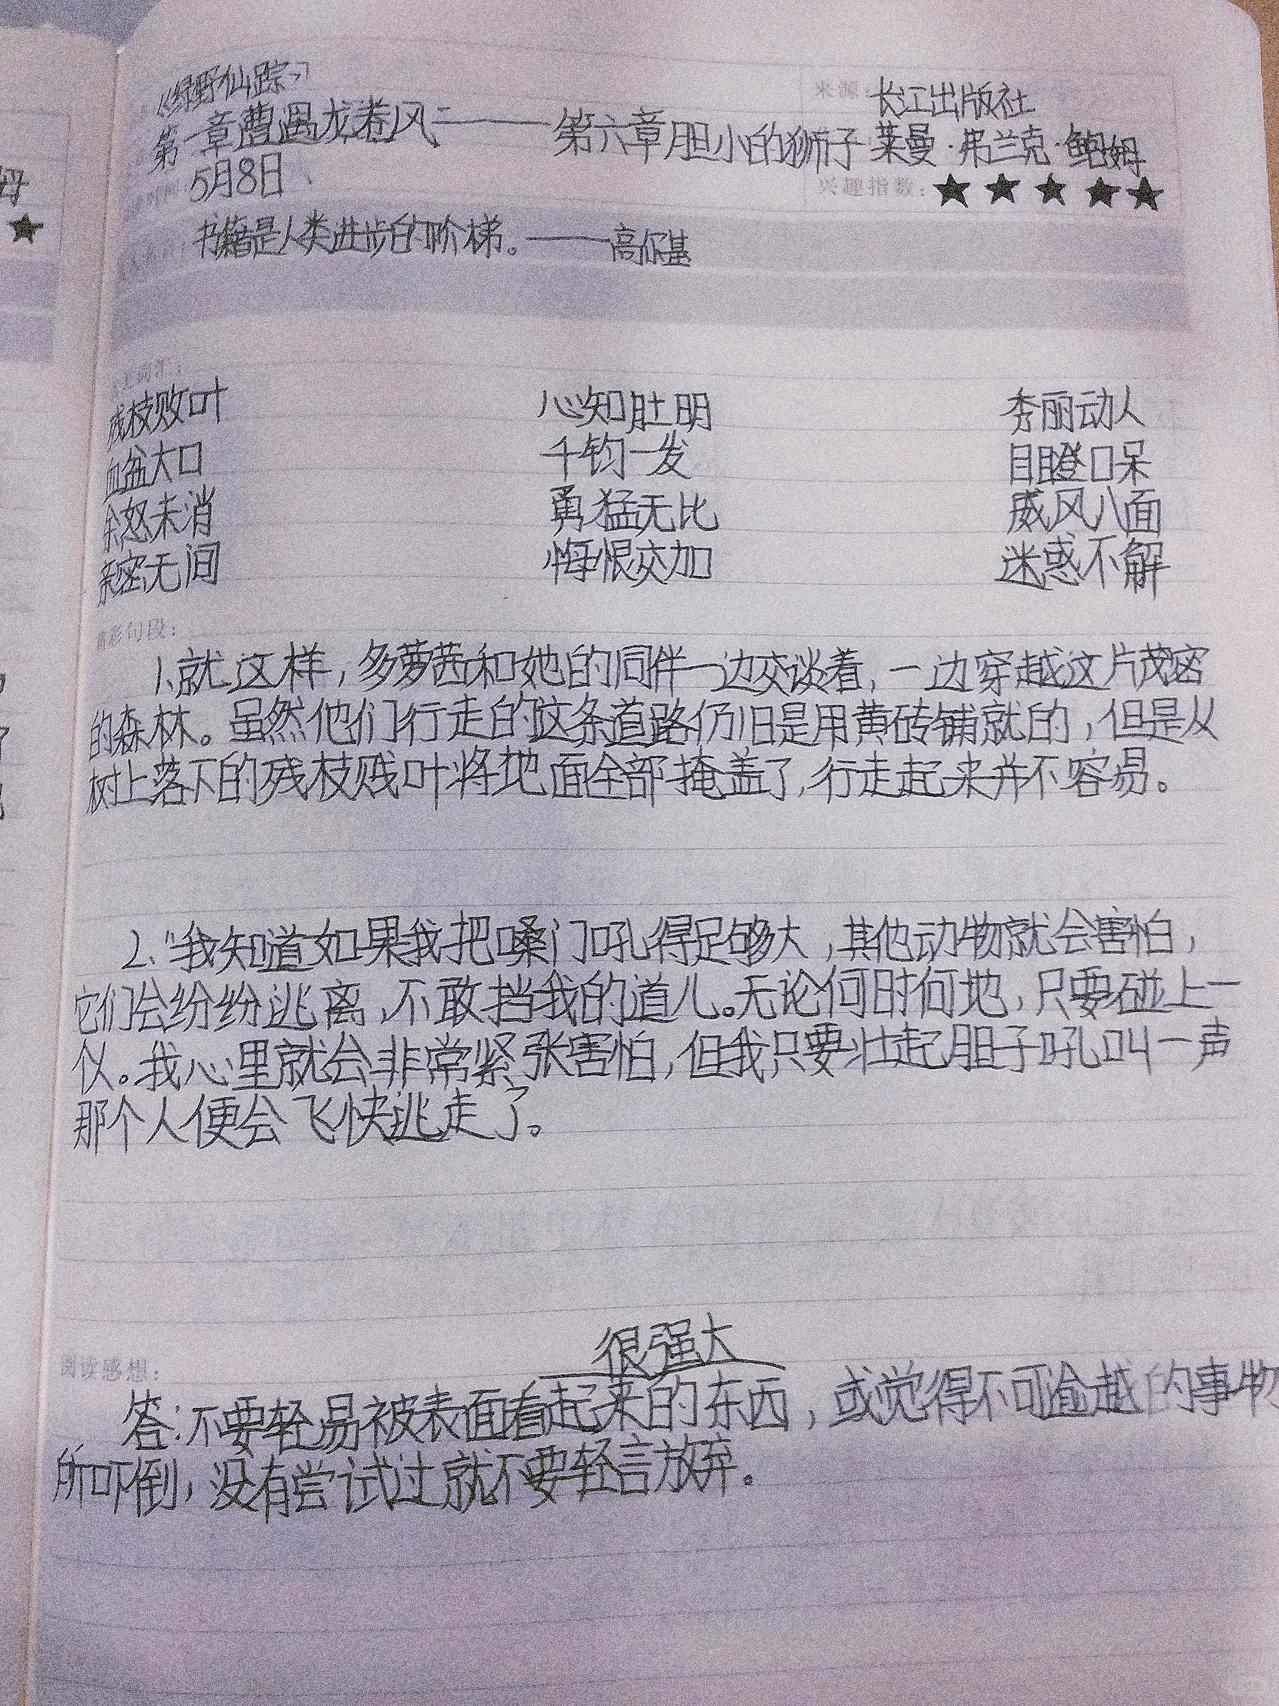 《绿野仙踪》
来源：长江出版社
第一章遭遇龙卷风——第六章胆小的狮子 莱曼·弗兰克·鲍姆
5月8日
兴趣指数：★★★★★
书籍是人类进步的阶梯。——高尔基
残枝败叶 心知肚明 秀丽动人
血盆大口 千钧一发 目瞪口呆
余怒未消 勇猛无比 威风八面
亲密无间 悔恨交加 迷惑不解
精彩句段：
1.就这样，多萝茜和她的同伴一边交谈着，一边穿越这片茂密
的森林。虽然他们行走的这条道路仍旧是用黄砖铺就的，但是从
树上落下的残枝贱叶将地面全部掩盖了，行走起来并不容易。
2.“我知道如果我把嗓门吼得足够大，其他动物就会害怕，
它们会纷纷逃离，不敢挡我的道儿。无论何时何地，只要碰上一
仪。我心里就会非常紧张害怕，但我只要壮起胆子吼叫一声
那个人便会飞快逃走了。
阅读感想：
很强大
答：不要轻易被表面看起来的东西，或觉得不可逾越的事物
所吓倒，没有尝试过就不要轻言放弃。